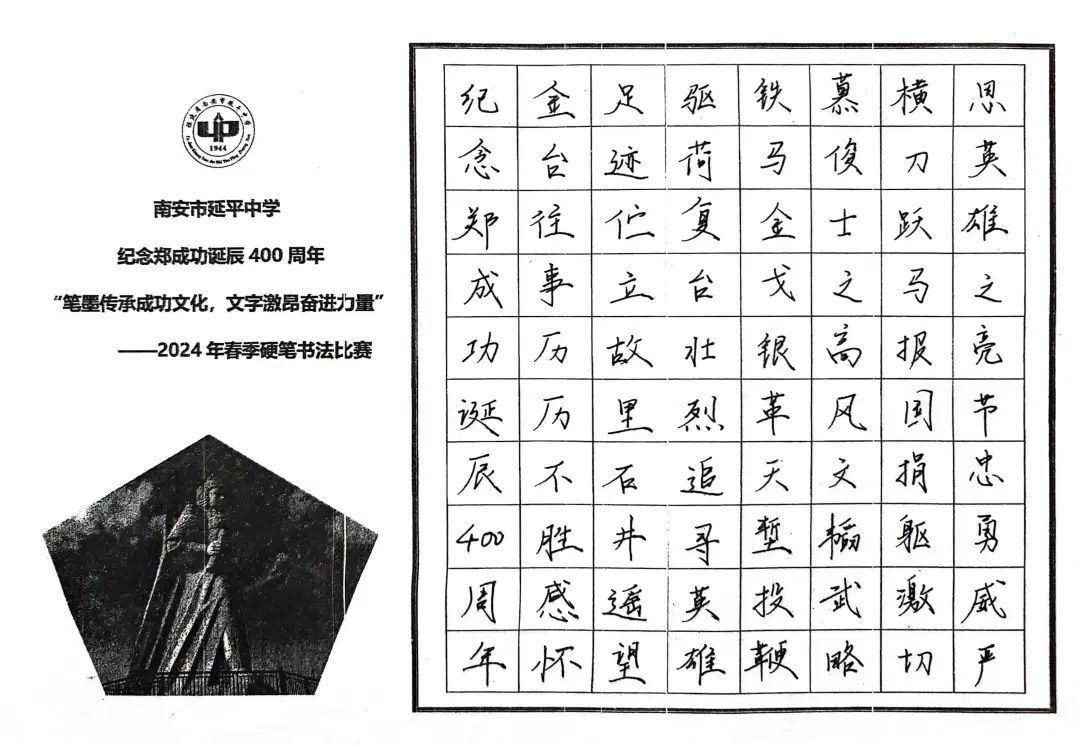 福建省南安市延平中学
1944
南安市延平中学
纪念郑成功诞辰 400 周年
“笔墨传承成功文化，文字激昂奋进力量”
——2024 年春季硬笔书法比赛
纪念郑成功诞辰400周年
金台往事历历不胜感怀
足迹伫立故里石井遥望
驱荷复台壮烈追寻英雄
铁马金戈银革天堑投鞭
慕俊士之高风文韬武略
横刀跃马报国捐躯激切
思英雄之亮节忠勇威严